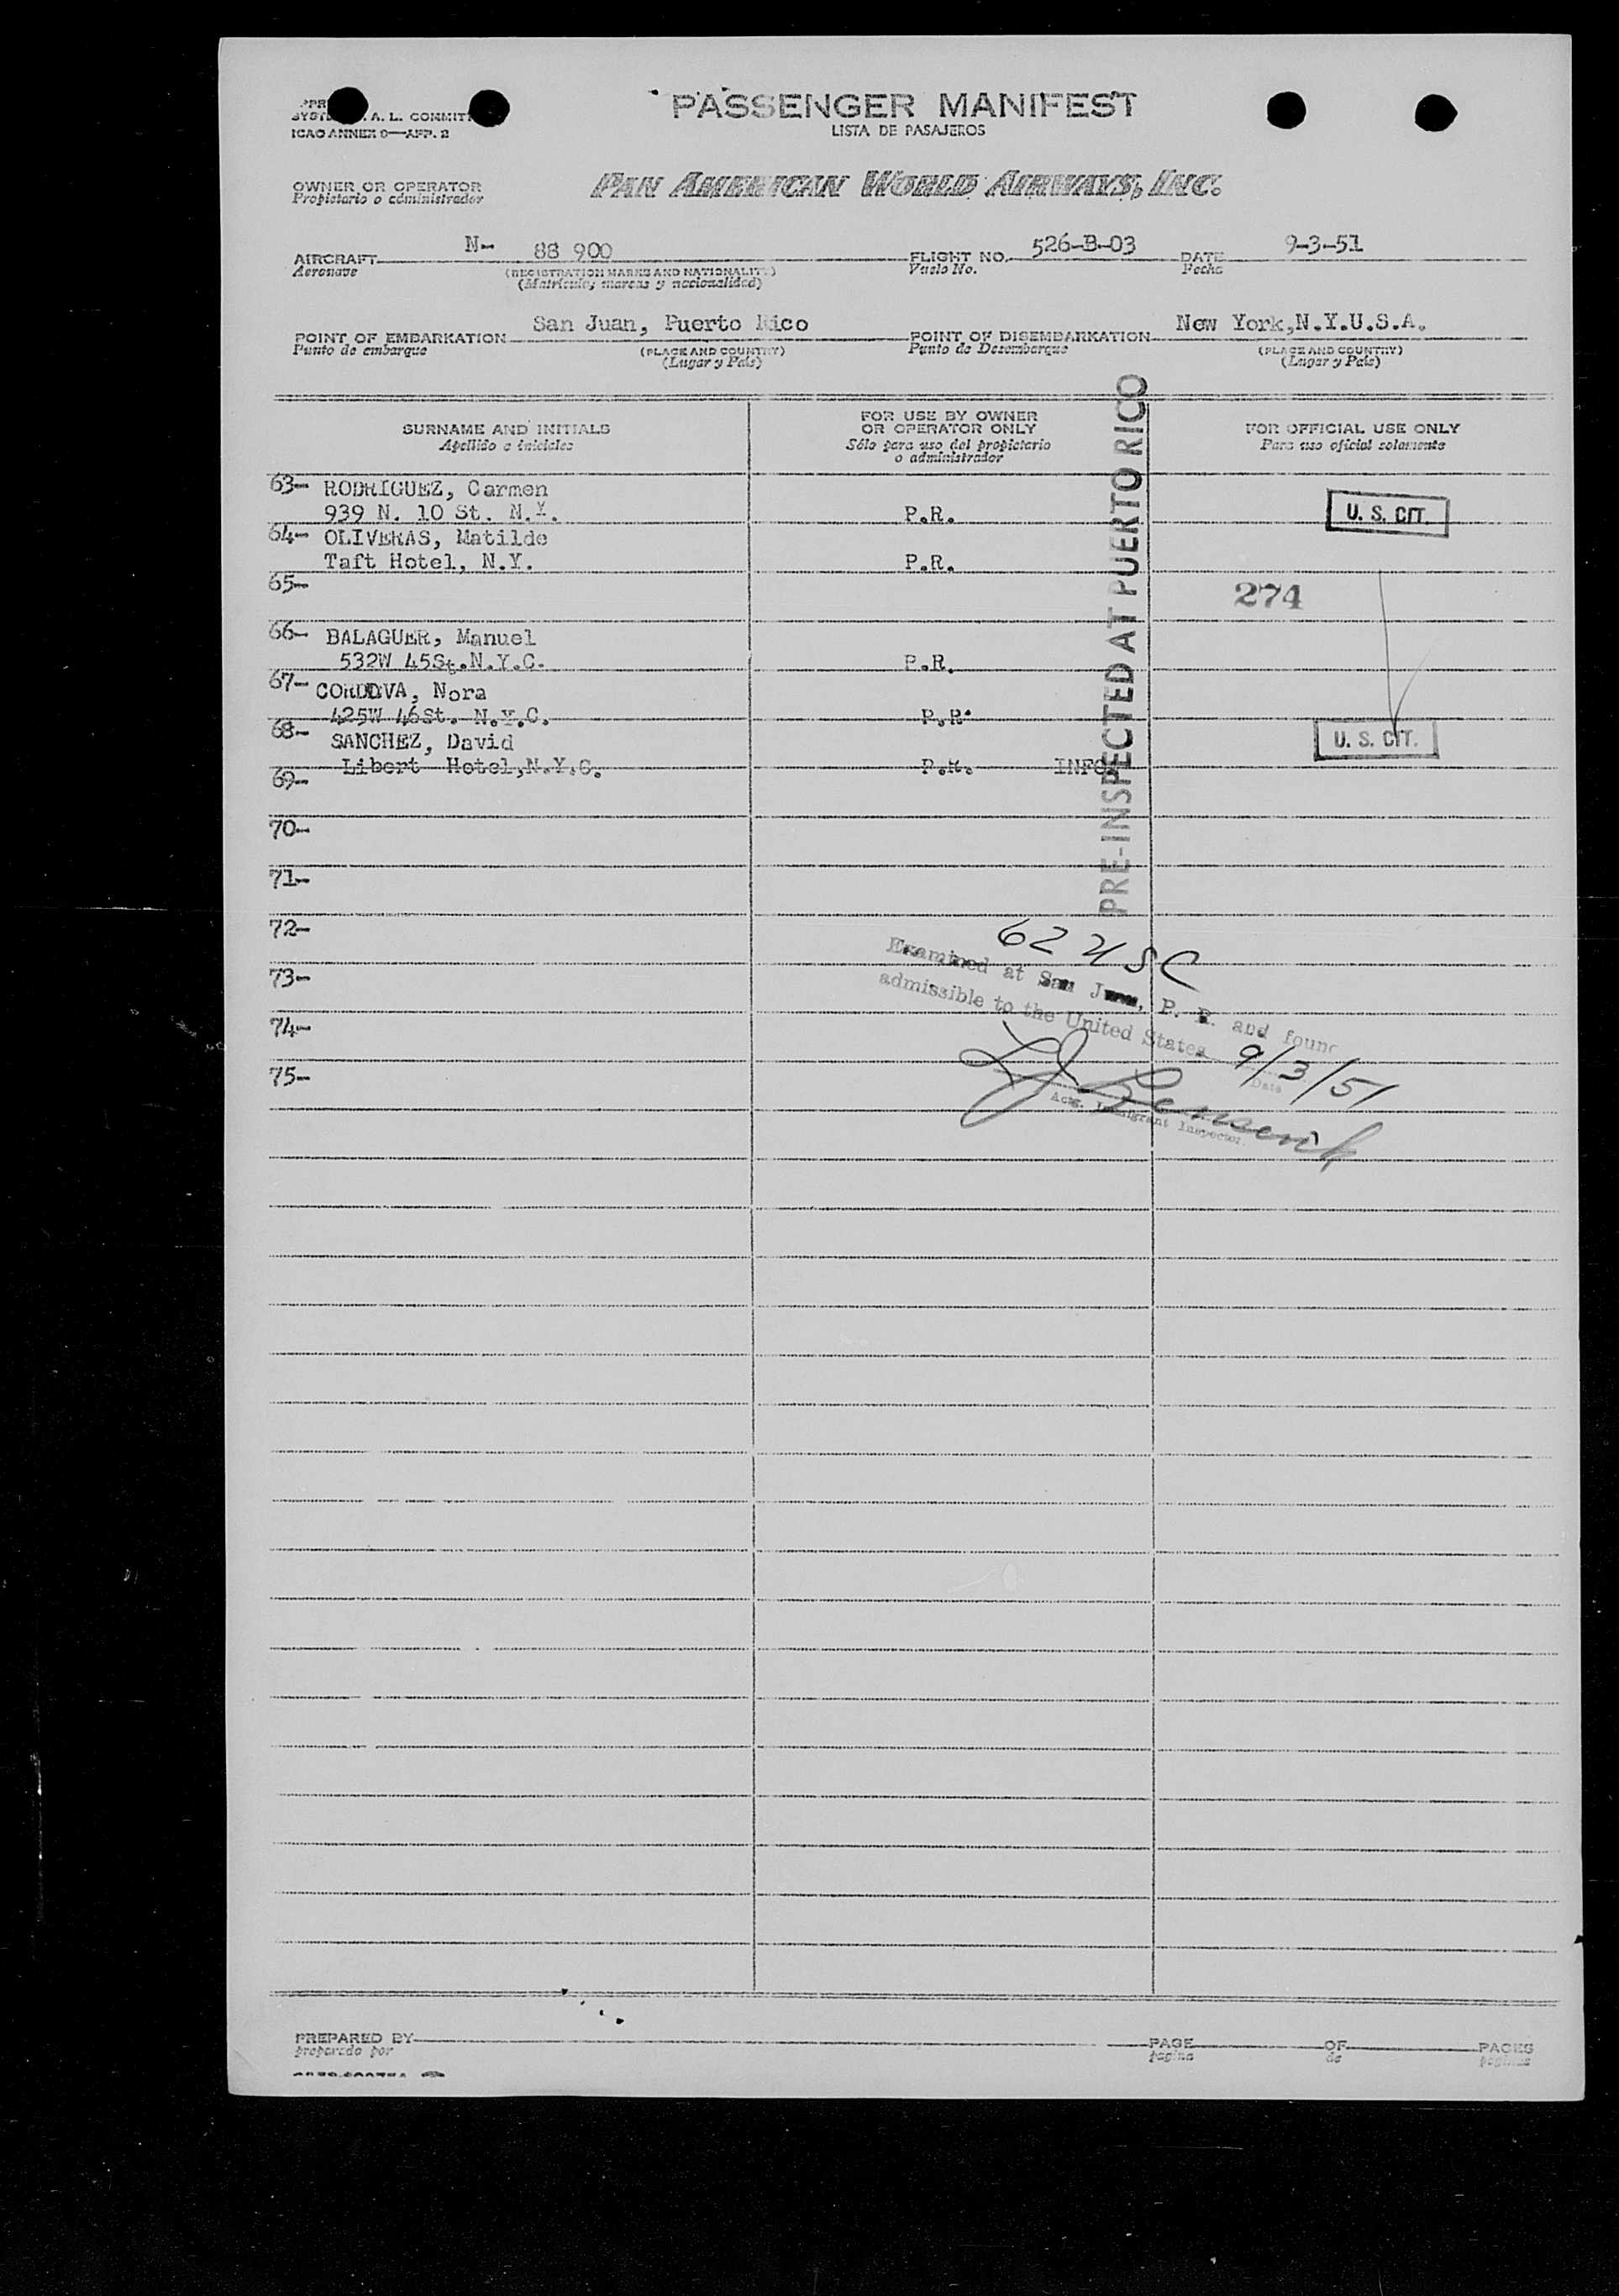 A. L. COMMIT
PASSENGER MANIFEST
ICAO ANNEX 9—APP. 2
LISTA DE PASAJEROS
OWNER OR OPERATOR
Propietario o administrador
PAN AMERICAN WORLD AIRWAYS, INC.
AIRCRAFT N- 88 900 FLIGHT NO. 526-B-03 DATE 9-3-51
Aeronave (REGISTRATION MARKS AND NATIONALITY) Vuelo No. Fecha
(Matrícula, marcas y nacionalidad)
POINT OF EMBARKATION San Juan, Puerto Rico POINT OF DISEMBARKATION New York,N.Y.U.S.A.
Punto de embarque (PLACE AND COUNTRY) Punto de Desembarque (PLACE AND COUNTRY)
(Lugar y País) (Lugar y País)
SURNAME AND INITIALS
Apellido e iniciales
FOR USE BY OWNER
OR OPERATOR ONLY
Sólo para uso del propietario
o administrador
FOR OFFICIAL USE ONLY
Para uso oficial solamente
PRE-INSPECTED AT PUERTO RICO
63- RODRIGUEZ, Carmen
939 N. 10 St. N.Y. P.R. U. S. CIT.
64- OLIVERAS, Matilde
Taft Hotel, N.Y. P.R.
65- 274
66- BALAGUER, Manuel
532W 45St.N.Y.C. P.R.
67- CORDOVA, Nora
425W 46St. N.Y.C. P.R.
68- SANCHEZ, David U. S. CIT.
Libert Hotel,N.Y.C. P.R. INFO
69-
70-
71-
72-
73-
74-
75-
62 USC
Examined at San Juan, P. R. and found
admissible to the United States 9/3/51
Date
Actg. Immigrant Inspector.
PREPARED BY PAGE OF PAGES
preparado por pagina de paginas